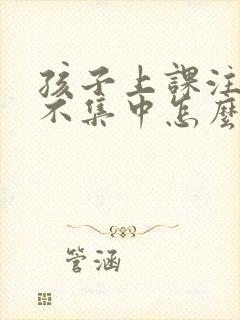 孩子上課注
不集中怎麼
管涵